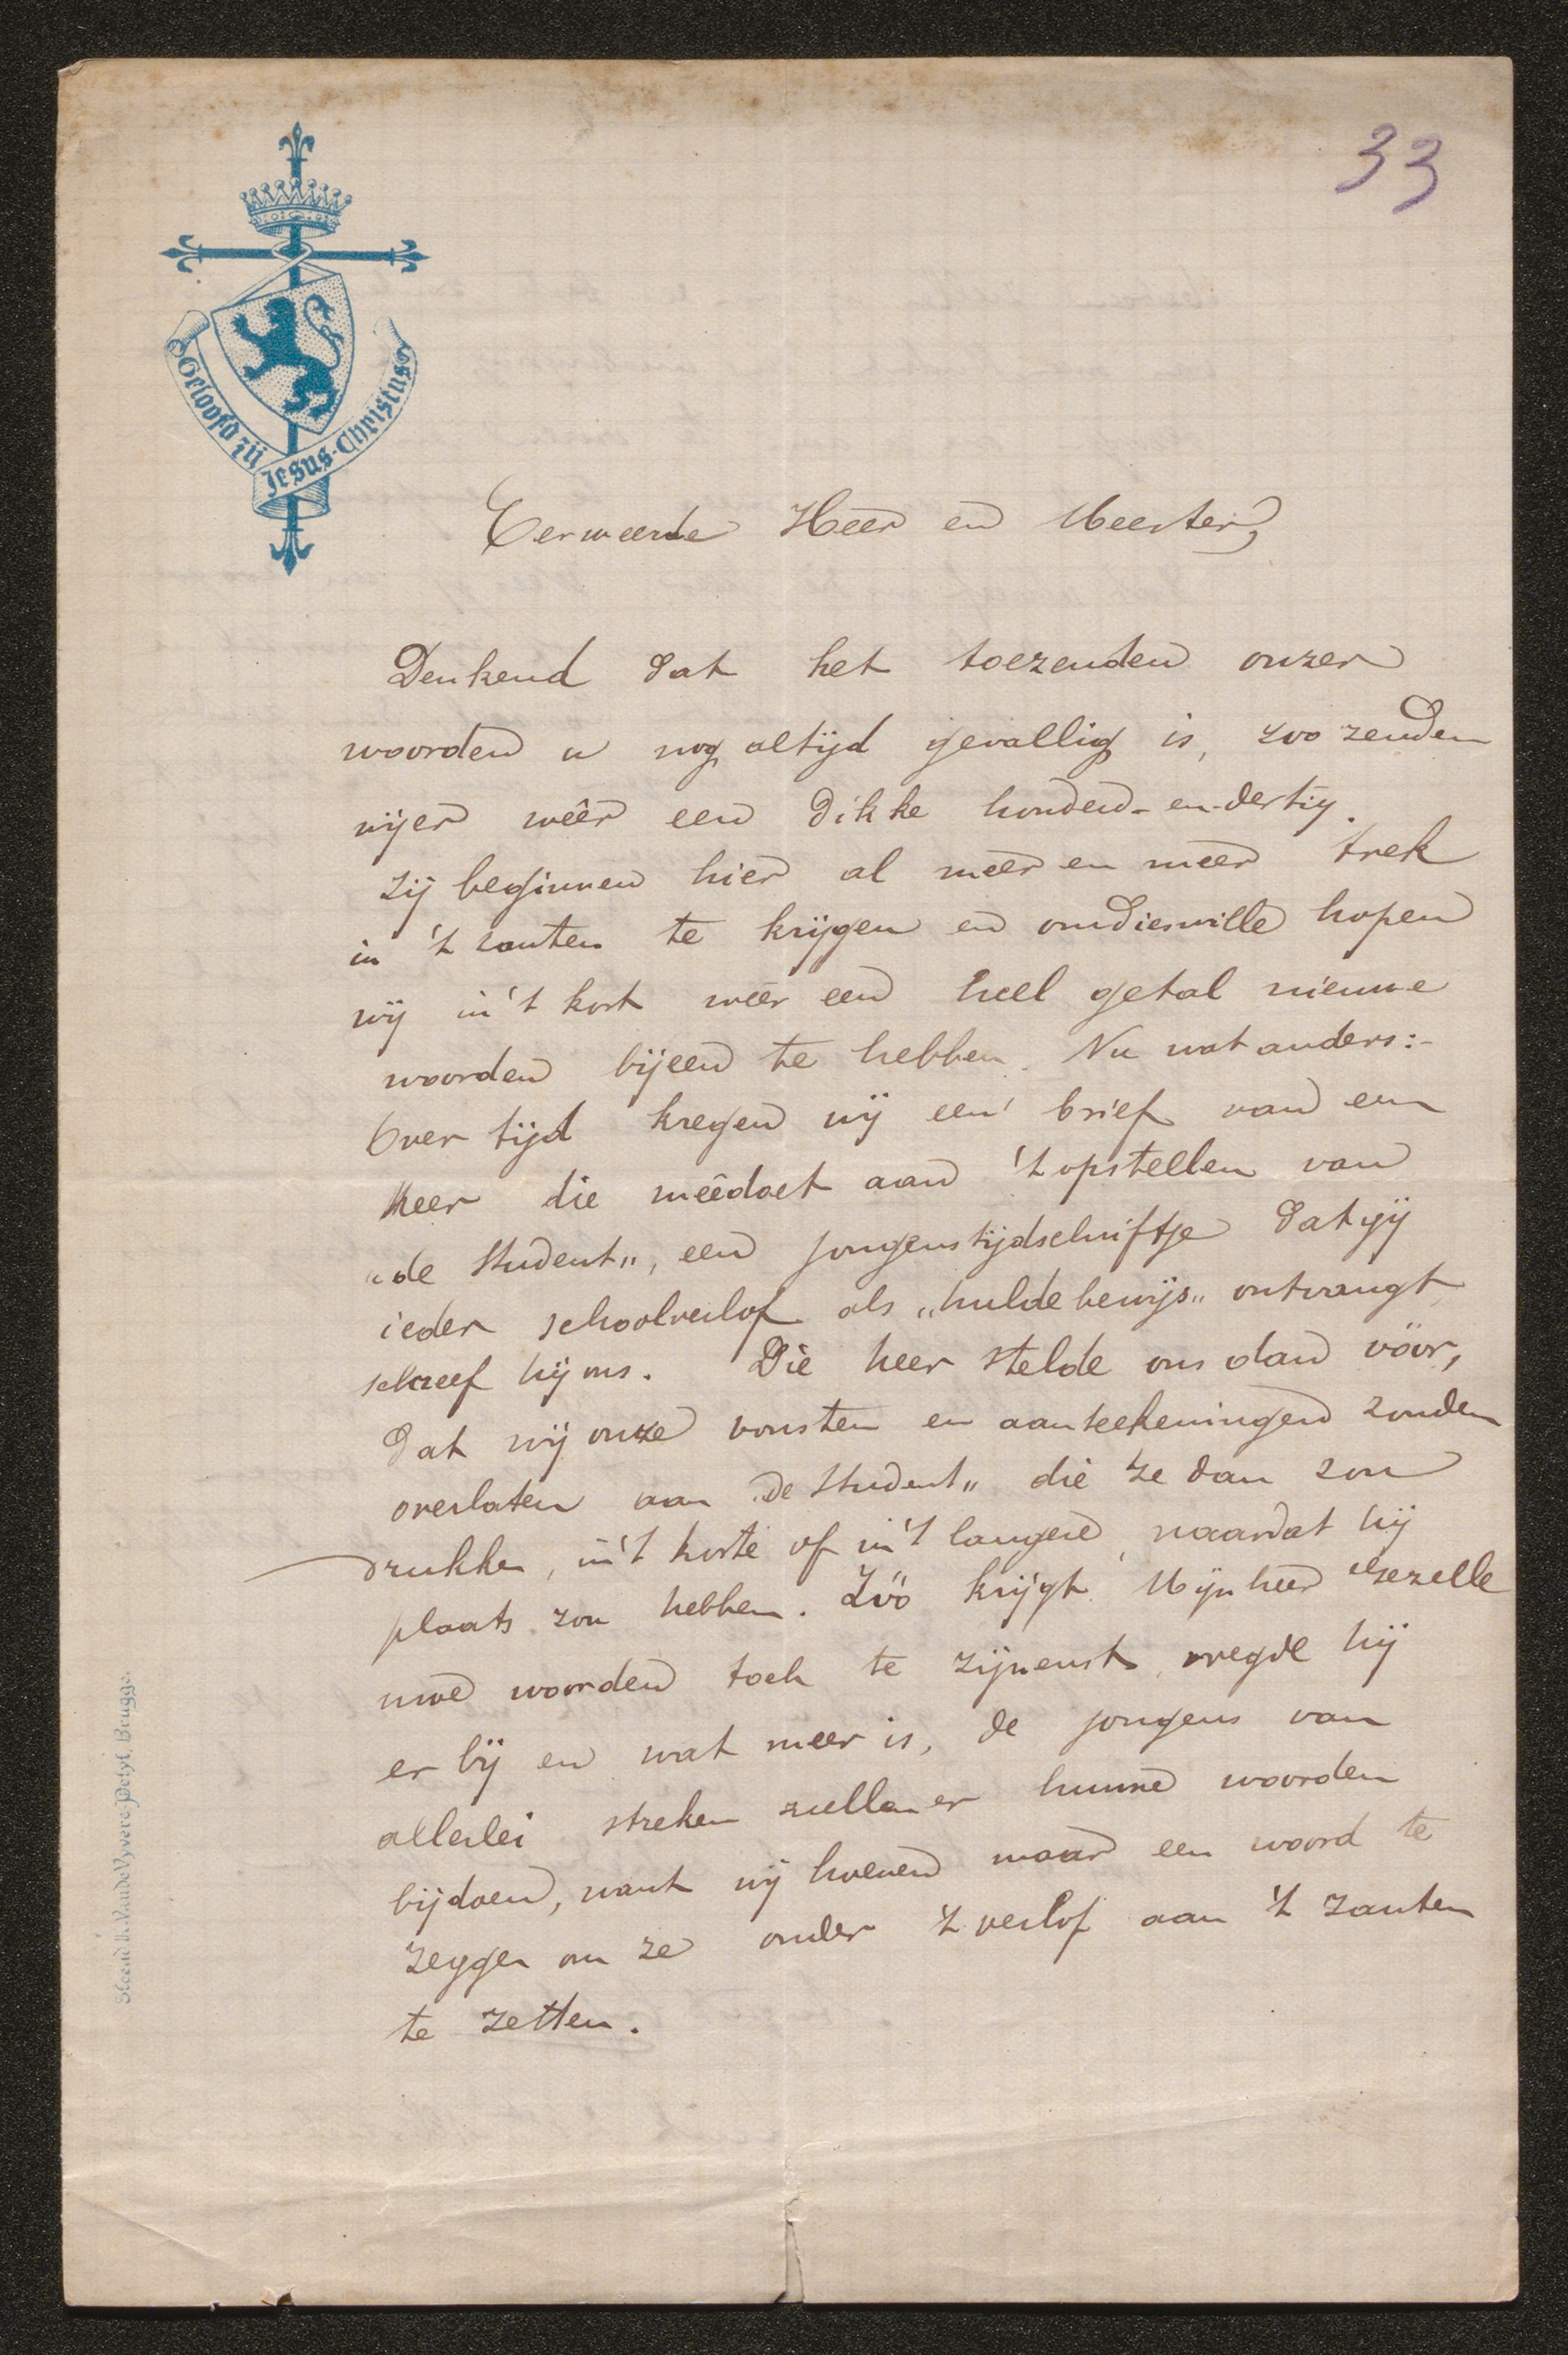 33
Geloofd zij Jesus-Christus
Eerweerde Heer en Meester,
Denkend dat het toezenden onzer
woorden u nog altijd gevallig is, zoo zenden
wijer wêêr een dikke honderd-en-dertig.
Zij beginnen hier al meer en meer trek
in 't zanten te krijgen en omdieswille hopen
wij in 't kort wêêr een heel getal nieuwe
woorden bijeen te hebben. Nu wat anders:-
Over tijd kregen wij een' brief van een
heer die meêdoet aan 't opstellen van
"de Student", een jongenstijdschriftje dat gij
ieder schoolverlof als "huldebewijs" ontvangt,
schreef hij ons. Die heer stelde ons dan vóór,
dat wij onze vonsten en aanteekeningen zouden
overlaten aan "De Student" die ze dan zou
drukken, in 't korte of in 't langere, naardat hij
plaats zou hebben. Zóó krijgt Mijnheer Gezelle
uwe woorden toch te zijnent, vregde hij
er bij en wat meer is, de jongens van
allerlei streken zullen er hunne woorden
bijdoen, want wij hoeven maar een woord te
zeggen om ze onder 't verlof aan 't zanten
te zetten.
Steend. K. Van de Vyvere-Petyt, Brugge.